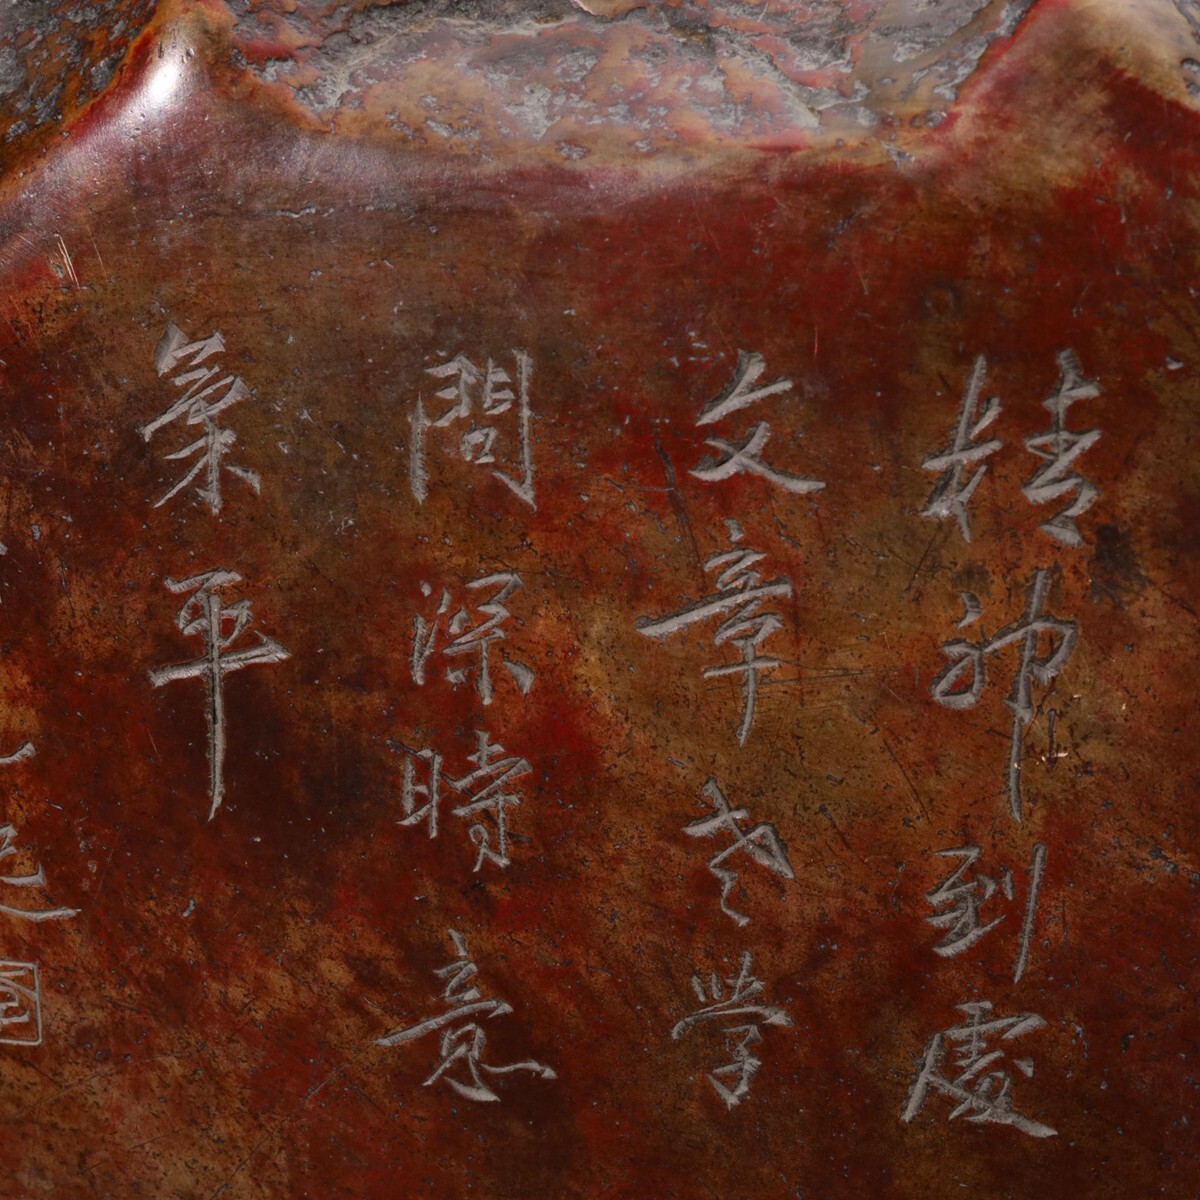 精神到處
文章老學
問深時意
氣平